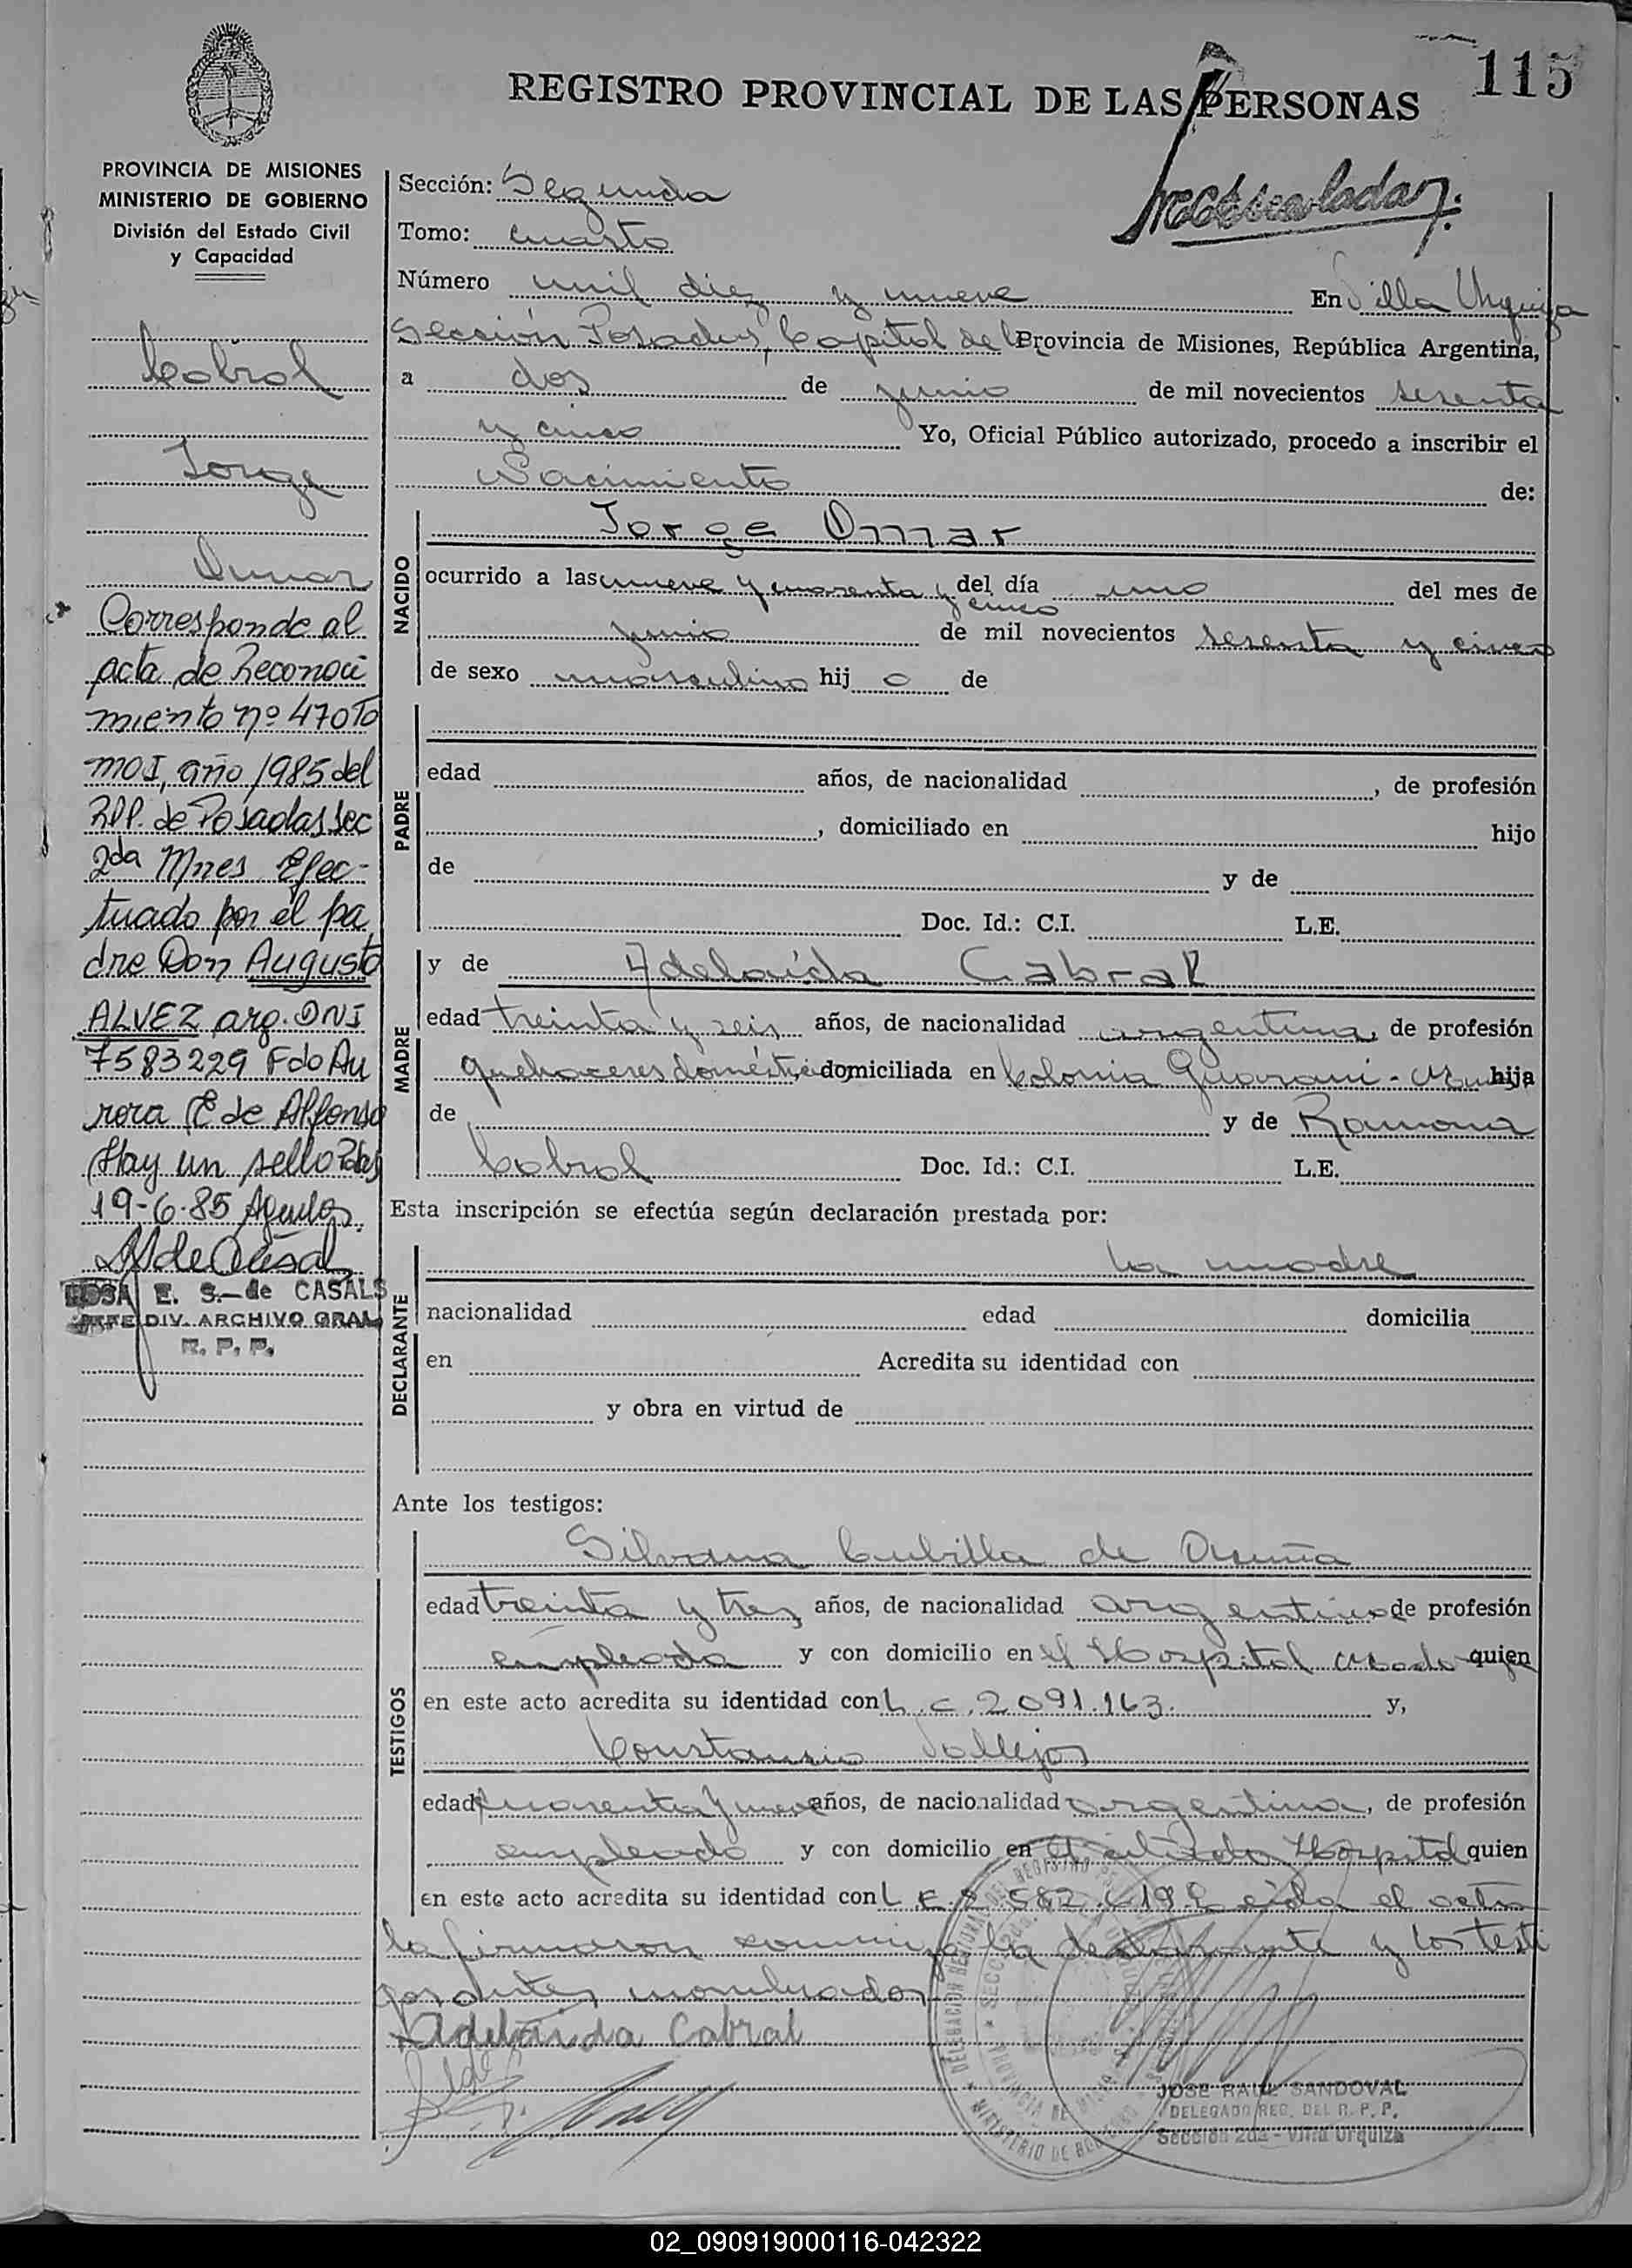 115
REGISTRO PROVINCIAL DE LAS PERSONAS
PROVINCIA DE MISIONES
MINISTERIO DE GOBIERNO
División del Estado Civil
y Capacidad
Cabral
Jorge
Omar
Corresponde al
acta de Reconoci
miento nº 470 To
mo I, año 1985 del
RPP. de Posadas Sec
2da Mnes Efec-
tuado por el pa
dre Don Augusto
ALVEZ arg. DNI
7583229 Fdo Au
rora E de Alfonso
Hay un sello Pdas
19-6-85
ROSA E. S. de CASALS
JEFE DIV. ARCHIVO GRAL
R. P. P.
Sección: Segunda
Tomo: cuarto
Número mil diez y nueve En Villa Urquiza
Sección Posadas, Capital de la Provincia de Misiones, República Argentina,
a dos de junio de mil novecientos sesenta
y cinco Yo, Oficial Público autorizado, procedo a inscribir el
Nacimiento de:
NACIDO
Jorge Omar
ocurrido a las nueve y cuarenta y cinco del día uno del mes de
junio de mil novecientos sesenta y cinco
de sexo masculino hijo de
PADRE
edad años, de nacionalidad , de profesión
, domiciliado en hijo
de y de
Doc. Id.: C.I. L.E.
MADRE
y de Adelaida Cabral
edad treinta y seis años, de nacionalidad argentina, de profesión
quehaceres domésticos domiciliada en Colonia Guaraní - hija
de y de Ramona
Cabral Doc. Id.: C.I. L.E.
Esta inscripción se efectúa según declaración prestada por:
DECLARANTE
la madre
nacionalidad edad domicilia
en Acredita su identidad con
y obra en virtud de
Ante los testigos:
TESTIGOS
Silvana Cubilla de
edad treinta y tres años, de nacionalidad argentina de profesión
empleada y con domicilio en el Hospital quien
en este acto acredita su identidad con L.C. 2091.163. y,
Constancio Vallejos
edad cuarenta y nueve años, de nacionalidad argentina, de profesión
empleado y con domicilio en el citado Hospital quien
en este acto acredita su identidad con L E Leída el acta
la firmaron conmigo la declarante y los testi
gos antes nombrados
Adelaida Cabral
JOSE RAUL SANDOVAL
DELEGADO REG. DEL R. P. P.
Sección 2da - Villa Urquiza
02_090919000116-042322